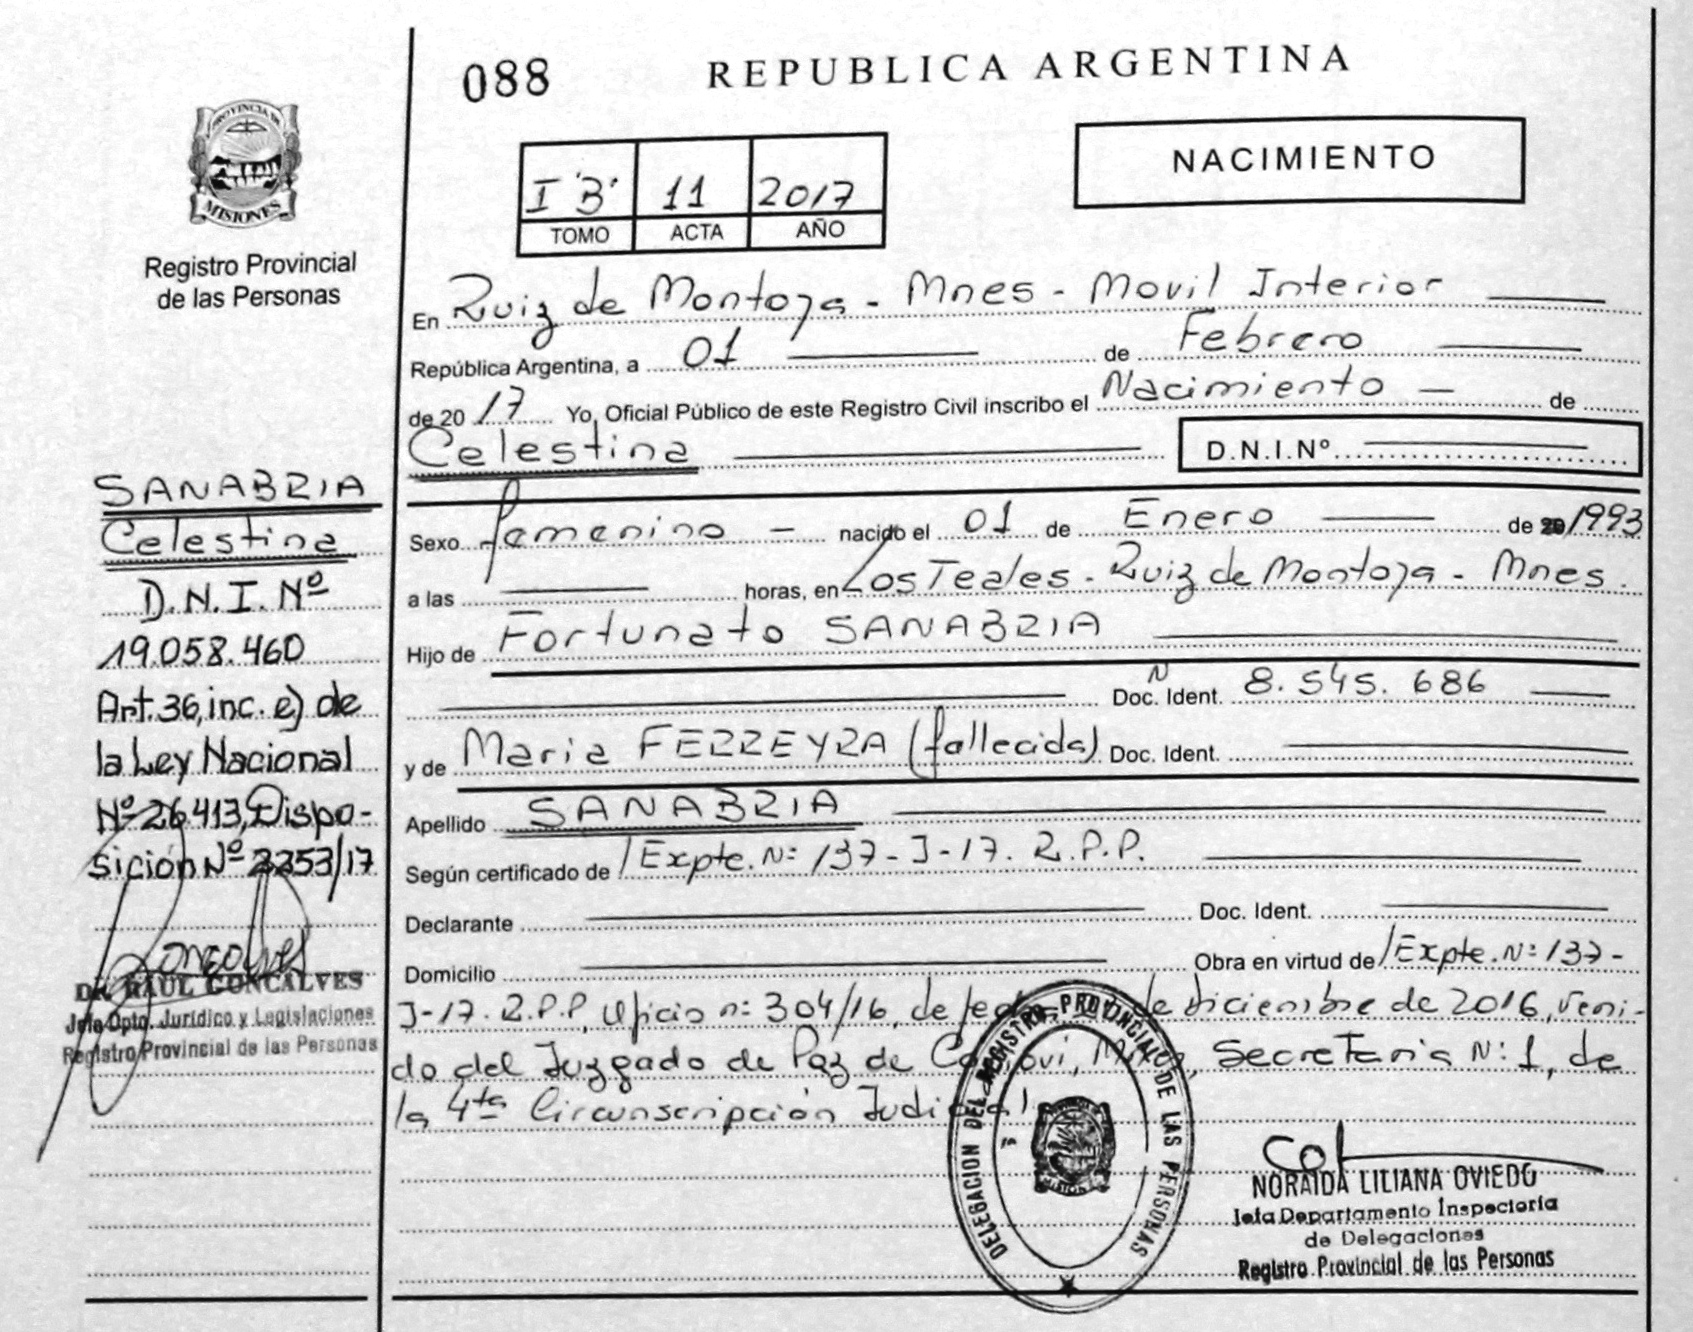 088
REPUBLICA ARGENTINA
PROVINCIA DE
MISIONES
Registro Provincial
de las Personas
I "B" 11 2017
TOMO ACTA AÑO
NACIMIENTO
En Ruiz de Montoya - Mnes - Movil Interior
República Argentina, a 01 de Febrero
de 2017 Yo, Oficial Público de este Registro Civil inscribo el Nacimiento de
Celestina
D.N.I.Nº
Sexo femenino - nacido el 01 de Enero de 1993
a las horas, en Los Teales - Ruiz de Montoya - Mnes.
Hijo de Fortunato SANABRIA
Doc. Ident. N 8.545.686
y de Maria FERREYRA (fallecida) Doc. Ident.
Apellido SANABRIA
Según certificado de /Expte. Nº 137-J-17. R.P.P.
Declarante Doc. Ident.
Domicilio Obra en virtud de /Expte. Nº 137-
J-17. R.P.P, Oficio nº 304/16, de de diciembre de 2016, veni-
do del Juzgado de Paz de Secretaria Nº 1, de
la 4ta Circunscripción Judicial
SANABRIA
Celestina
D.N.I. Nº
19.058.460
Art. 36, inc. e) de
la Ley Nacional
Nº 26413, Dispo-
sición Nº 2253/17
DR. RAUL GONCALVES
Jefe Dpto. Jurídico y Legislaciones
Registro Provincial de las Personas
DELEGACION DEL REGISTRO PROVINCIAL DE LAS PERSONAS
NORAIDA LILIANA OVIEDO
Jefa Departamento Inspectoría
de Delegaciones
Registro Provincial de las Personas